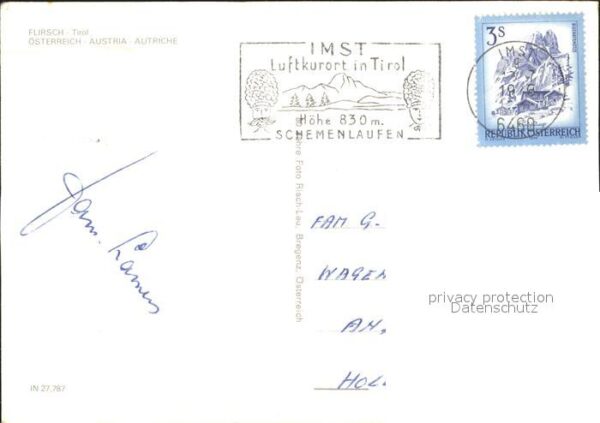 FLIRSCH - Tirol
ÖSTERREICH - AUSTRIA - AUTRICHE
IMST
Luftkurort in Tirol
Höhe 830 m.
SCHEMENLAUFEN
3S
IMST
6460
REPUBLIK ÖSTERREICH
Foto Risch-Lau, Bregenz, Österreich
Fam.
FAM G.
WAGEN
AM,
HOL.
privacy protection
Datenschutz
IN 27.787